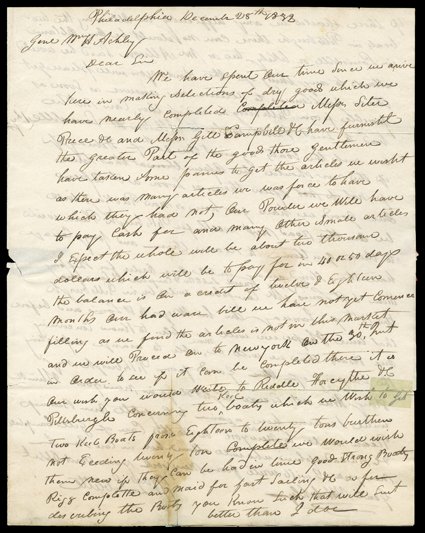 Philadelphia December 28th 1832
Genl Wm H Ashley
Dear Sir
We have spent our time since we arive
here in making selections of dry good which we
have nearly completed Completed Messr Siter
Price &c and Messr Gill Campbell &c have furnished
the greater Part of the goods those gentlemen
have taken some paines to get the articles we wisht
as there was many articles we was force to have
which they had not, Our Powder we will have
to pay Cash for and many other small articles
I expect the whole will be about two thousand
dollars which will be to pay for in 40 or 60 days
the balance is on a credit of twelve & Eighteen
months Our hard ware bill we have not yet Commence
filling as we find the articles is not in this market
and we will Proceed on to New york on the 30th Inst
in order to see if it can be completed there it is
our wish you would write to Riddle Forsythe &c
Pittsburgh Concerning two Keel boats which we wish to get
two Keel Boats from Eighteen to twenty tons burthen
not Eceding twenty ton Complete we would wish
them new if they Can be had in time good strong Boats
Rigg complette and maid for fast sailing &c as for
describing the Boats you know such that will suit
better than I doe